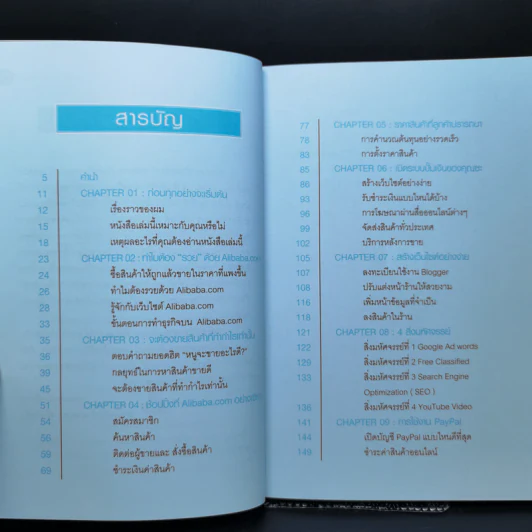 สารบัญ
5 คำนำ
11 CHAPTER 01 : ก่อนทุกอย่างจะเริ่มต้น
12 เรื่องราวของผม
15 หนังสือเล่มนี้เหมาะกับคุณหรือไม่
18 เหตุผลอะไรที่คุณต้องอ่านหนังสือเล่มนี้
23 CHAPTER 02 : ทำไมต้อง "รวย" ด้วย Alibaba.com
24 ซื้อสินค้าให้ถูกแล้วขายในราคาที่แพงขึ้น
26 ทำไมต้องรวยด้วย Alibaba.com
28 รู้จักกับเว็บไซต์ Alibaba.com
33 ขั้นตอนการทำธุรกิจบน Alibaba.com
35 CHAPTER 03 : จะต้องขายสินค้าที่ทำกำไรเท่านั้น
36 ตอบคำถามยอดฮิต "หนูจะขายอะไรดี?"
39 กลยุทธ์ในการหาสินค้าขายดี
45 จะต้องขายสินค้าที่ทำกำไรเท่านั้น
51 CHAPTER 04 : ช้อปปิ้งที่ Alibaba.com
54 สมัครสมาชิก
56 ค้นหาสินค้า
59 ติดต่อผู้ขายและ สั่งซื้อสินค้า
69 ชำระเงินค่าสินค้า
77 CHAPTER 05 : ราคาสินค้าที่ลูกค้าปรารถนา
78 การคำนวณต้นทุนอย่างรวดเร็ว
83 การตั้งราคาสินค้า
85 CHAPTER 06 :
86 สร้างเว็บไซต์อย่างง่าย
93 รับชำระเงินแบบไหนได้บ้าง
96 การโฆษณาผ่านสื่อออนไลน์ต่างๆ
99 จัดส่งสินค้าทั่วประเทศ
102 บริการหลังการขาย
105 CHAPTER 07 : สร้างเว็บไซต์อย่างง่าย
107 ลงทะเบียนใช้งาน Blogger
108 ปรับแต่งหน้าร้านให้สวยงาม
116 เพิ่มหน้าข้อมูลที่จำเป็น
118 ลงสินค้าในร้าน
121 CHAPTER 08 : 4 สิ่งมหัศจรรย์
122 สิ่งมหัศจรรย์ที่ 1 Google Ad words
129 สิ่งมหัศจรรย์ที่ 2 Free Classified
133 สิ่งมหัศจรรย์ที่ 3 Search Engine
Optimization ( SEO )
136 สิ่งมหัศจรรย์ที่ 4 YouTube Video
141 CHAPTER 09 : การใช้งาน PayPal
144 เปิดบัญชี PayPal แบบไหนดีที่สุด
149 ชำระค่าสินค้าออนไลน์